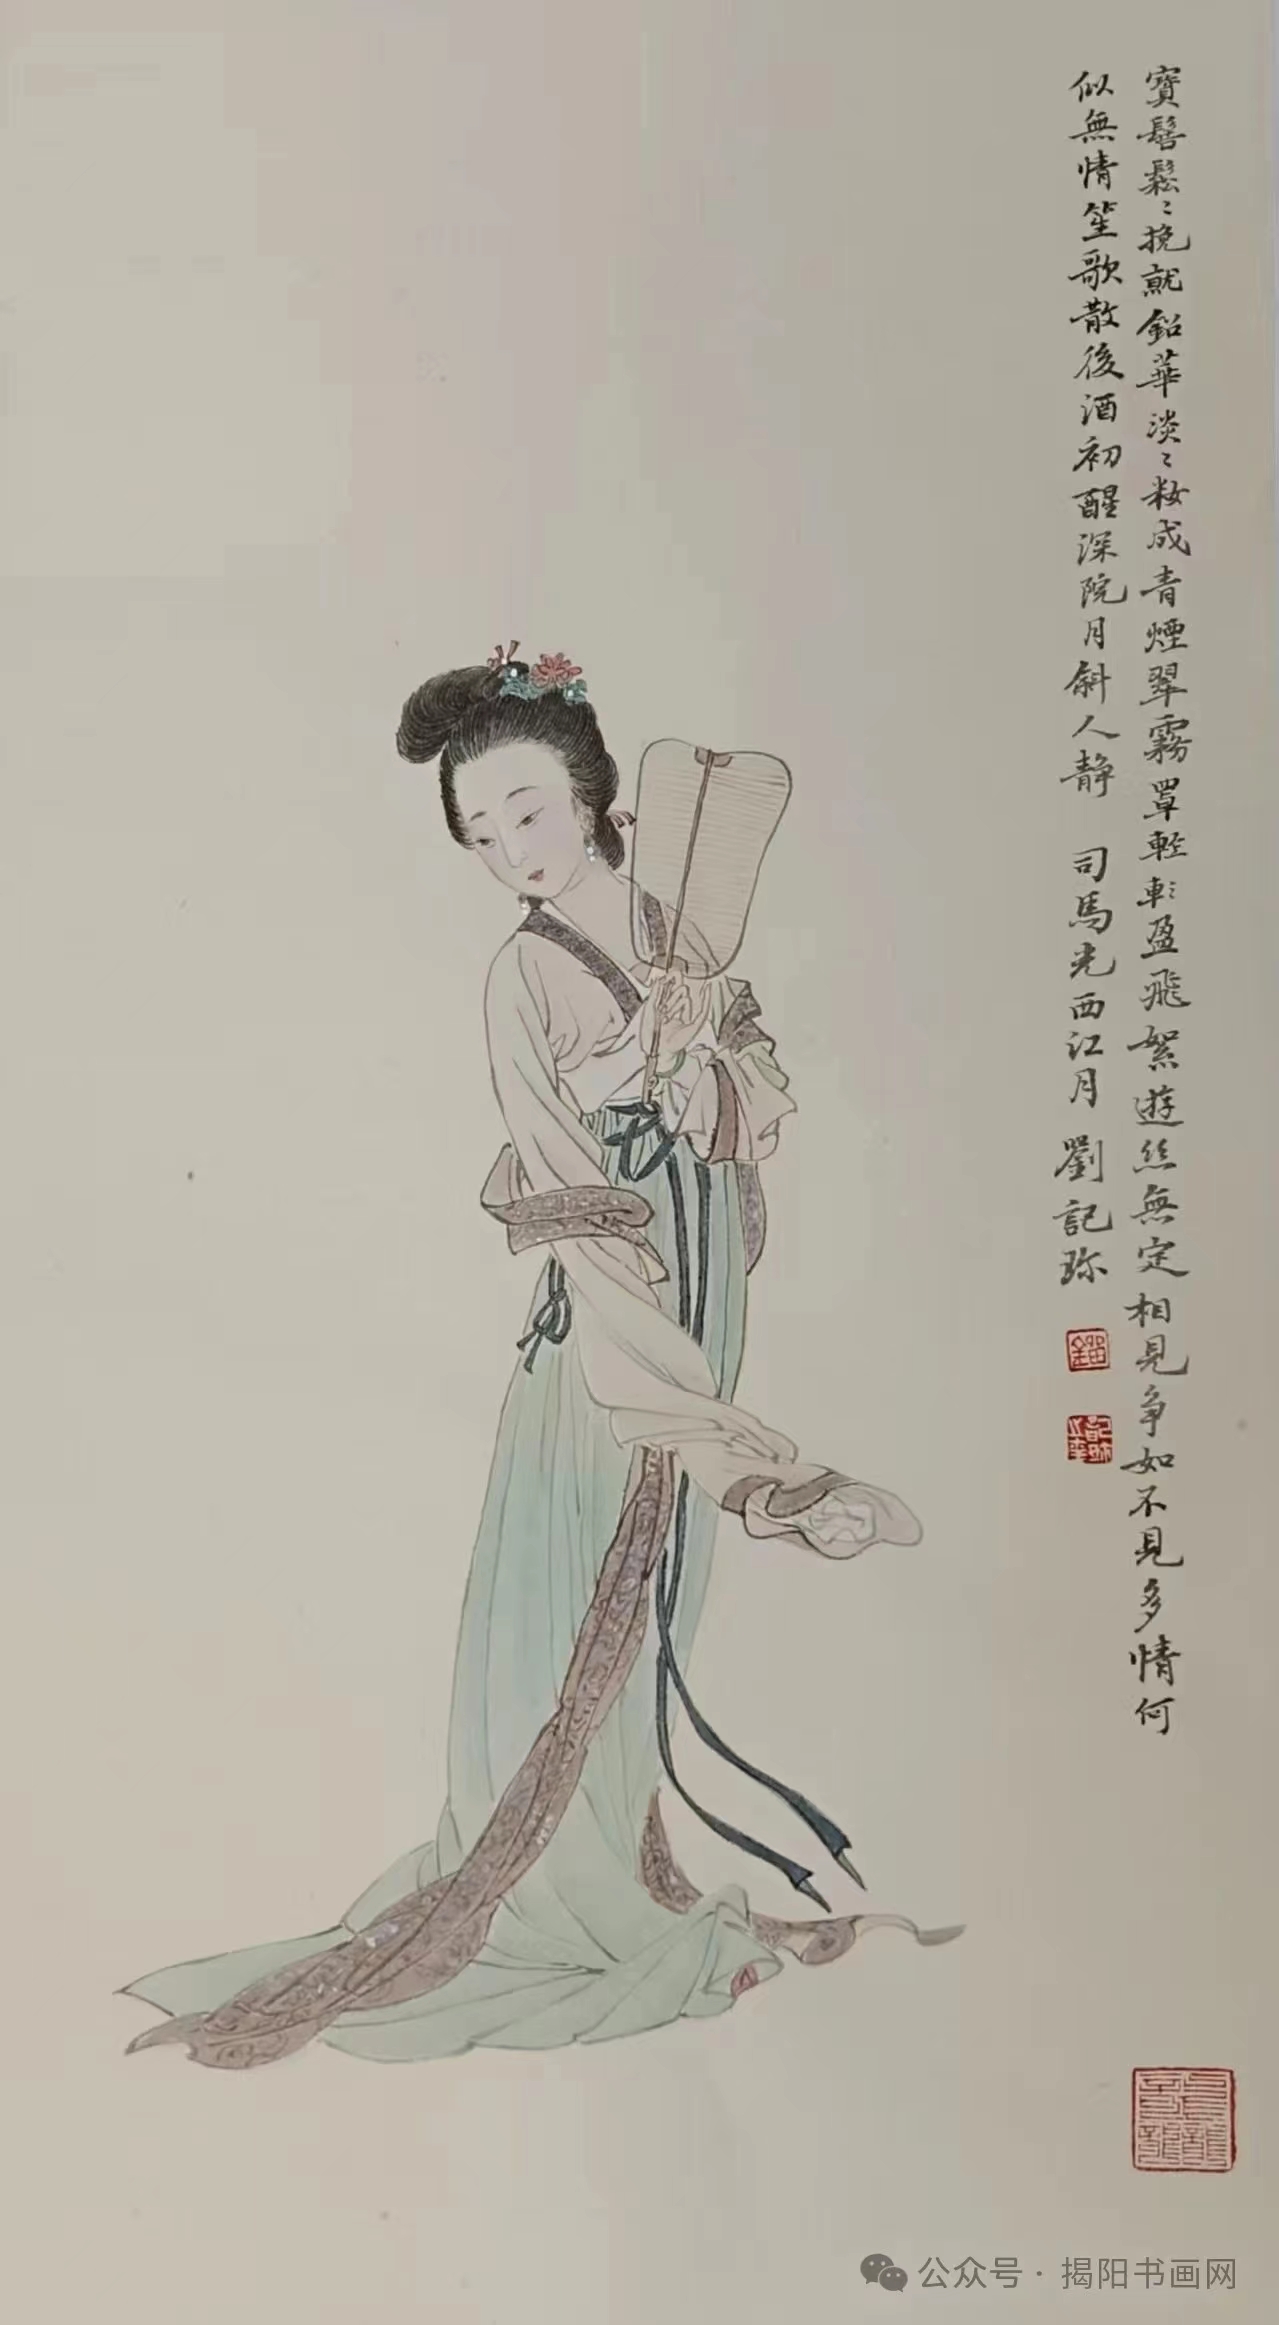 寶髻鬆〻挽就鉛華淡〻妝成青煙翠霧罩輕輕盈飛絮遊絲無定相見争如不見多情何
似無情笙歌散後酒初醒深院月斜人静 司馬光西江月 劉記珎
公众号·揭阳书画网